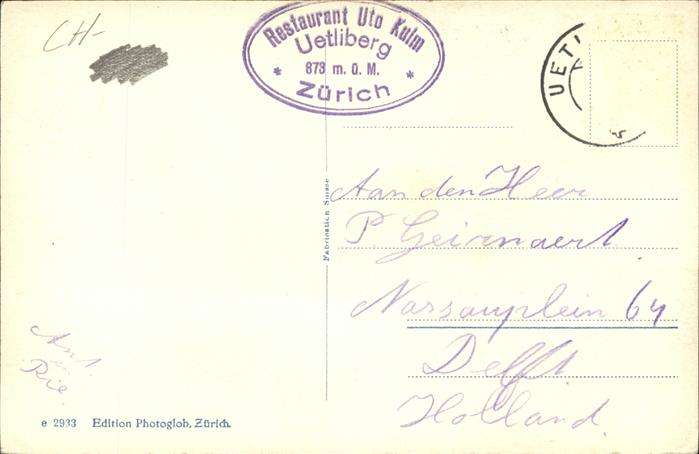 CH-
Restaurant Uto Kulm
Uetliberg
* 873 m. ü. M. *
Zürich
UETL
Fabrication Suisse
Aan den Heer
P. Geirnaert
Nassauplein 64
Delft
Holland.
Ant
en
Rie.
e 2933 Edition Photoglob, Zürich.